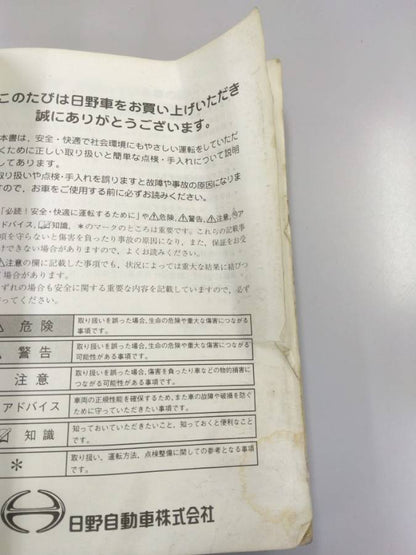 このたびは日野車をお買い上げいただき
誠にありがとうございます。
本書は、安全・快適で社会環境にもやさしい運転をしていただ
くために正しい取り扱いと簡単な点検・手入れについて説明
してあります。
取り扱いや点検・手入れを誤りますと故障や事故の原因になりま
すので、お車をご使用する前に必ずお読みください。
「必読！安全・快適に運転するために」や⚠危険、⚠警告、⚠注意、
ドバイス、知識、＊のマークのところは重要です。これらの記載事
項を守らないと傷害を負ったり事故の原因になり、また、保証をお受
けできない場合がありますので、よくお読みください。
⚠注意の欄に記載した事項でも、状況によっては重大な結果に結びつ
く場合があります。
いずれの場合も安全に関する重要な内容を記載していますので、必ず
守ってください。
⚠ 危険 取り扱いを誤った場合、生命の危険や重大な傷害につながる
事項です。
警告 取り扱いを誤った場合、生命の危険や重大な傷害につながる
可能性がある事項です。
注意 取り扱いを誤った場合、傷害を負ったり車などの物的損害に
つながる可能性がある事項です。
アドバイス 車両の正規性能を確保するため、また車の故障や破損を防ぐ
ために守っていただきたい事項です。
知識 知っておいていただきたいこと、知っておくと便利なこと
です。
＊ 取り扱い、運転方法、点検整備に関しての参考となる事項
です。
日野自動車株式会社